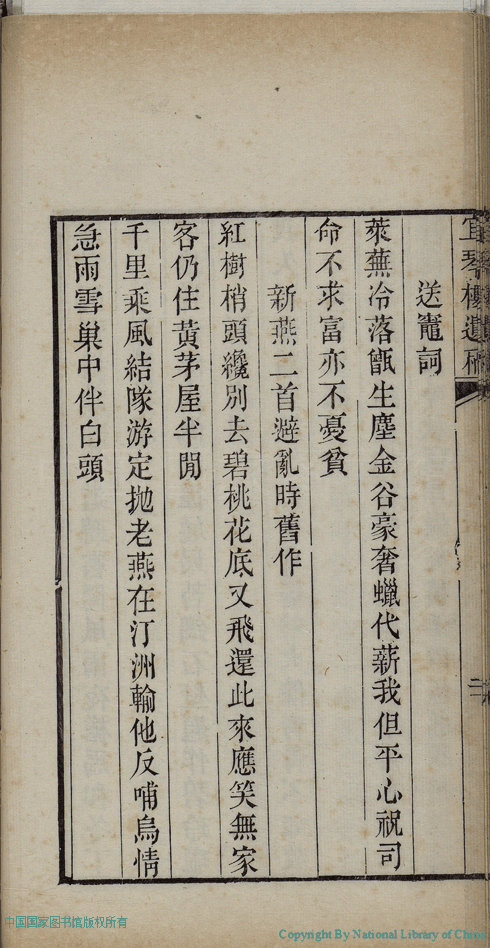 宜琴樓遺稿
送竈詞
萊蕪冷落甑生塵金谷豪奢蠟代薪我但平心祝司
命不求富亦不憂貧
新燕二首避亂時舊作
紅樹梢頭纔別去碧桃花底又飛還此來應笑無家
客仍住黃茅屋半閒
千里乘風結隊游定拋老燕在汀洲輸他反哺烏情
急雨雪巢中伴白頭
中国国家图书馆版权所有
Copyright By National Library of China